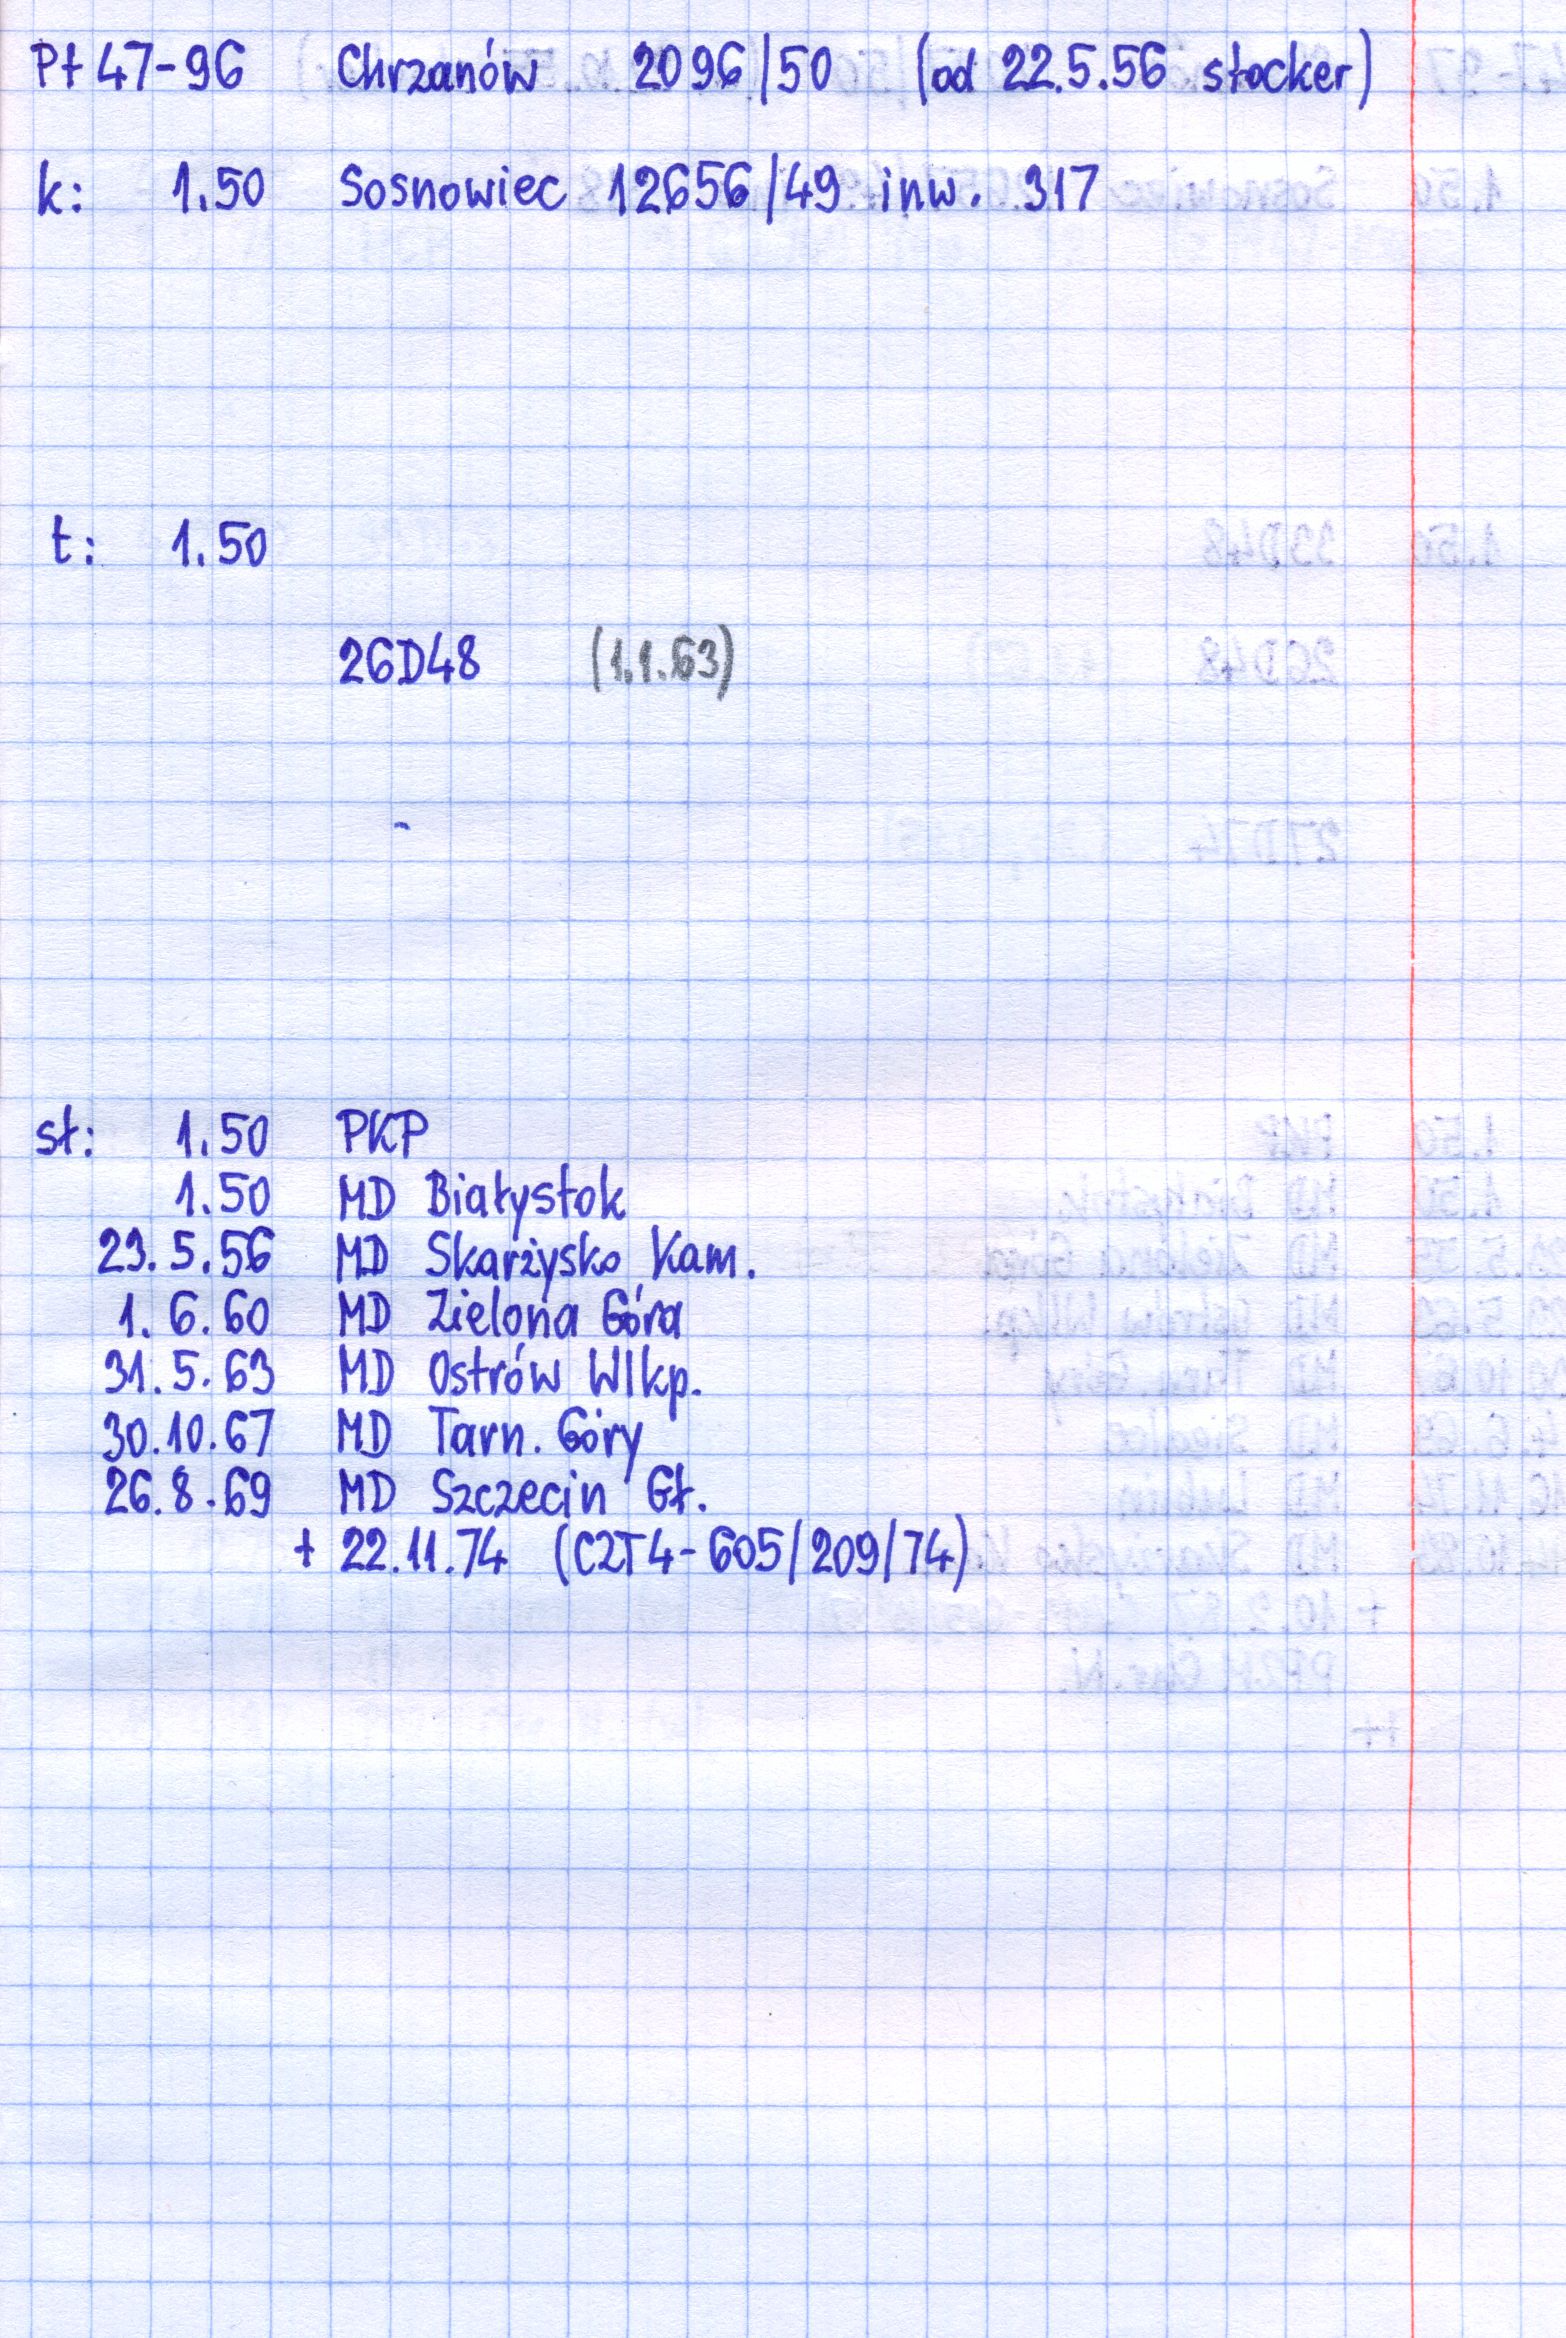 Pt 47-96 Chrzanów 2096/50 (od 22.5.56 stocker)
k: 1.50 Sosnowiec 12656/49 inw. 317
t: 1.50
26D48 (1.1.63)
st: 1.50 PKP
1.50 MD Białystok
23.5.56 MD Skarżysko Kam.
1.6.60 MD Zielona Góra
31.5.63 MD Ostrów Wlkp.
30.10.67 MD Tarn. Góry
26.8.69 MD Szczecin Gł.
+ 22.11.74 (C2T4-605/209/74)